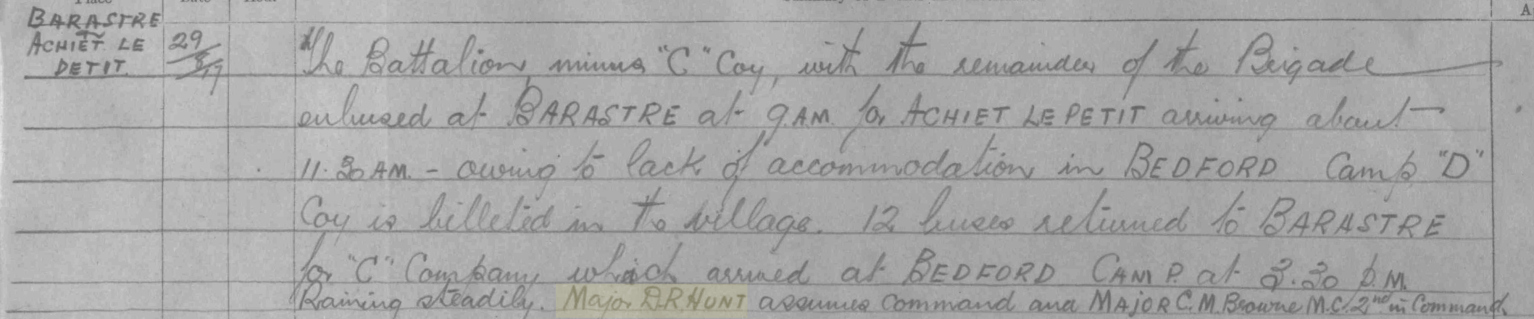 BARASTRE
to
ACHIET LE
PETIT.
29/8/17
The Battalion, minus "C" Coy, with the remainder of the Brigade
enbused at BARASTRE at 9.AM. for ACHIET LE PETIT arriving about
11.30 AM. - owing to lack of accommodation in BEDFORD Camp "D"
Coy is billeted in the village. 12 buses returned to BARASTRE
for "C" Company which arrived at BEDFORD CAMP. at 3.30 P.M.
Raining steadily. Major D.R HUNT assumes command and MAJOR C.M. Browne M.C. 2nd in Command